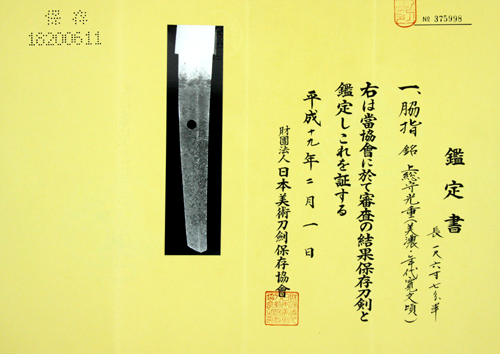 保存
18200611
№ 375998
鑑定書
一、脇指 銘 上総守光重(美濃・年代寛文頃)
長 一尺六寸七分半
右は當協會に於て審査の結果保存刀剣と
鑑定しこれを証する
平成十九年二月一日
財團法人 日本美術刀剣保存協會